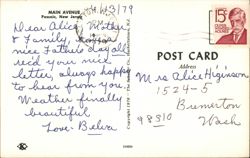 MAIN AVENUE
Passaic, New Jersey
Dear Alice, Mother
& Family,
nice Father's day all
rec'd your nice
letter, always happy
to hear from you.
Weather finally
beautiful
Love Belva
POST CARD
Mrs Alice Higinson
1524-5
Bremerton
98310 Wash
15¢